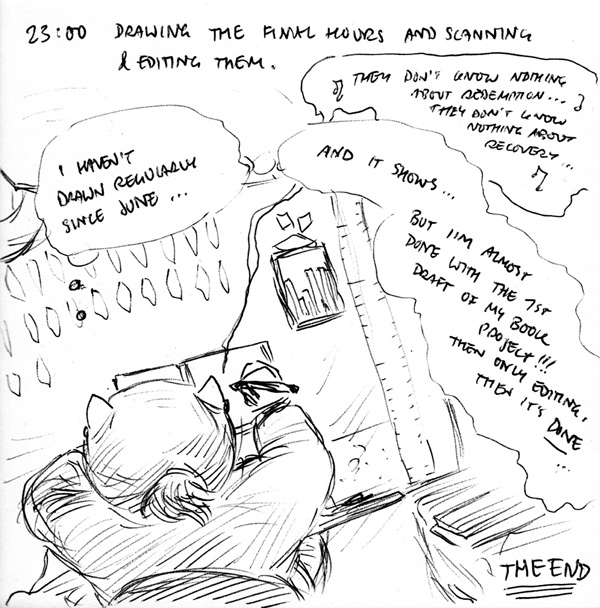 23:00 DRAWING THE FINAL HOURS AND SCANNING
& EDITING THEM.
♫ THEY DON'T KNOW NOTHING
ABOUT REDEMPTION... ♪
THEY DON'T KNOW
NOTHING ABOUT
RECOVERY...
♫
I HAVEN'T
DRAWN REGULARLY
SINCE JUNE ...
AND IT SHOWS...
BUT I'M ALMOST
DONE WITH THE 1ST
DRAFT OF MY BOOK
PROJECT!!!
THEN ONLY EDITING,
THEN IT'S DONE
...
THE END